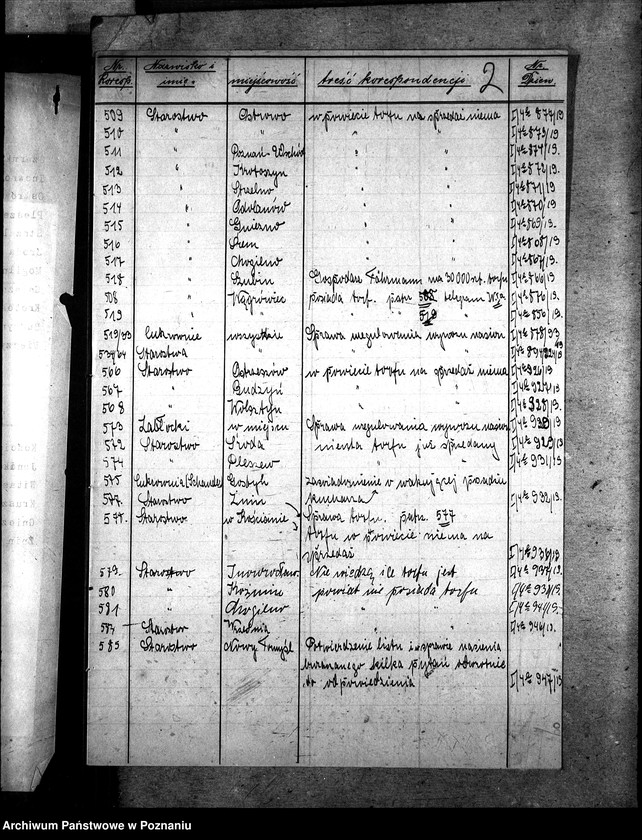 Nr. Koresp. Nazwisko i imię. miejscowość treść korespondencji 2 Nr. Dzien.
509 Starostwo Ostrowo w powiecie torfu na sprzedaż niema I/4a 877/19
510 " " " I/4a 873/19
511 " Poznań-Wschód " " I/4a 874/19.
512 " Krotoszyn " " I/4a 872/19.
513 " Strzelno " " I/4a 871/19
514 " Odolanów " " I/4a 870/19
515 " Gniezno " " I/4a 869/19.
516 " Śrem " " I/4a 868/19.
517 " Mogilno " " I/4a 867/19.
518 " Szubin Gospodarz Fährmann ma 30000 torfu I/4a 866/19
508 " Wągrowiec posiada torf. patrz telegram I/4a 876/19.
519 " " 519 " " I/4a 856/19.
519/33 Cukrownie wszystkie Sprawa uregulowania wywozu nasion I/4a 878/93
534/64 Starostwa
566 Starostwo Ostrzeszów w powiecie torfu na sprzedaż niema I/4a 926/19
567 " Budzyń " " I/4a 927/19.
568 " Wolsztyn " " I/4a 928/19.
573 Zabłocki w miejscu Sprawa uregulowania wywozu nasion I/4a 930/19
572 Starostwo Środa niema torfu już sprzedany I/4a 929/19.
574 " Pleszew " " I/4a 931/19
575 Cukrownia Gostyń zawiadomienie o wakującej posadzie
577 Starostwo Żnin kucharza I/4a 932/19.
578. Starostwo w Kościanie Sprawa torfu. patrz. 577
torfu w powiecie niema na
sprzedaż I/4a 938/19
579. Starostwo Inowrocław. Nie wiedzą ile torfu jest I/4a 937/19.
580 " Koźmin powiat nie posiada torfu
581 " Mogilno " " 941/19.
Starostwo " " 946/19.
585 Starostwo Nowy Tomyśl Potwierdzenie listu i w sprawie nasienia
kilka pytań odwrotnie
do odpowiedzenia I/4a 947/19
Archiwum Państwowe w Poznaniu